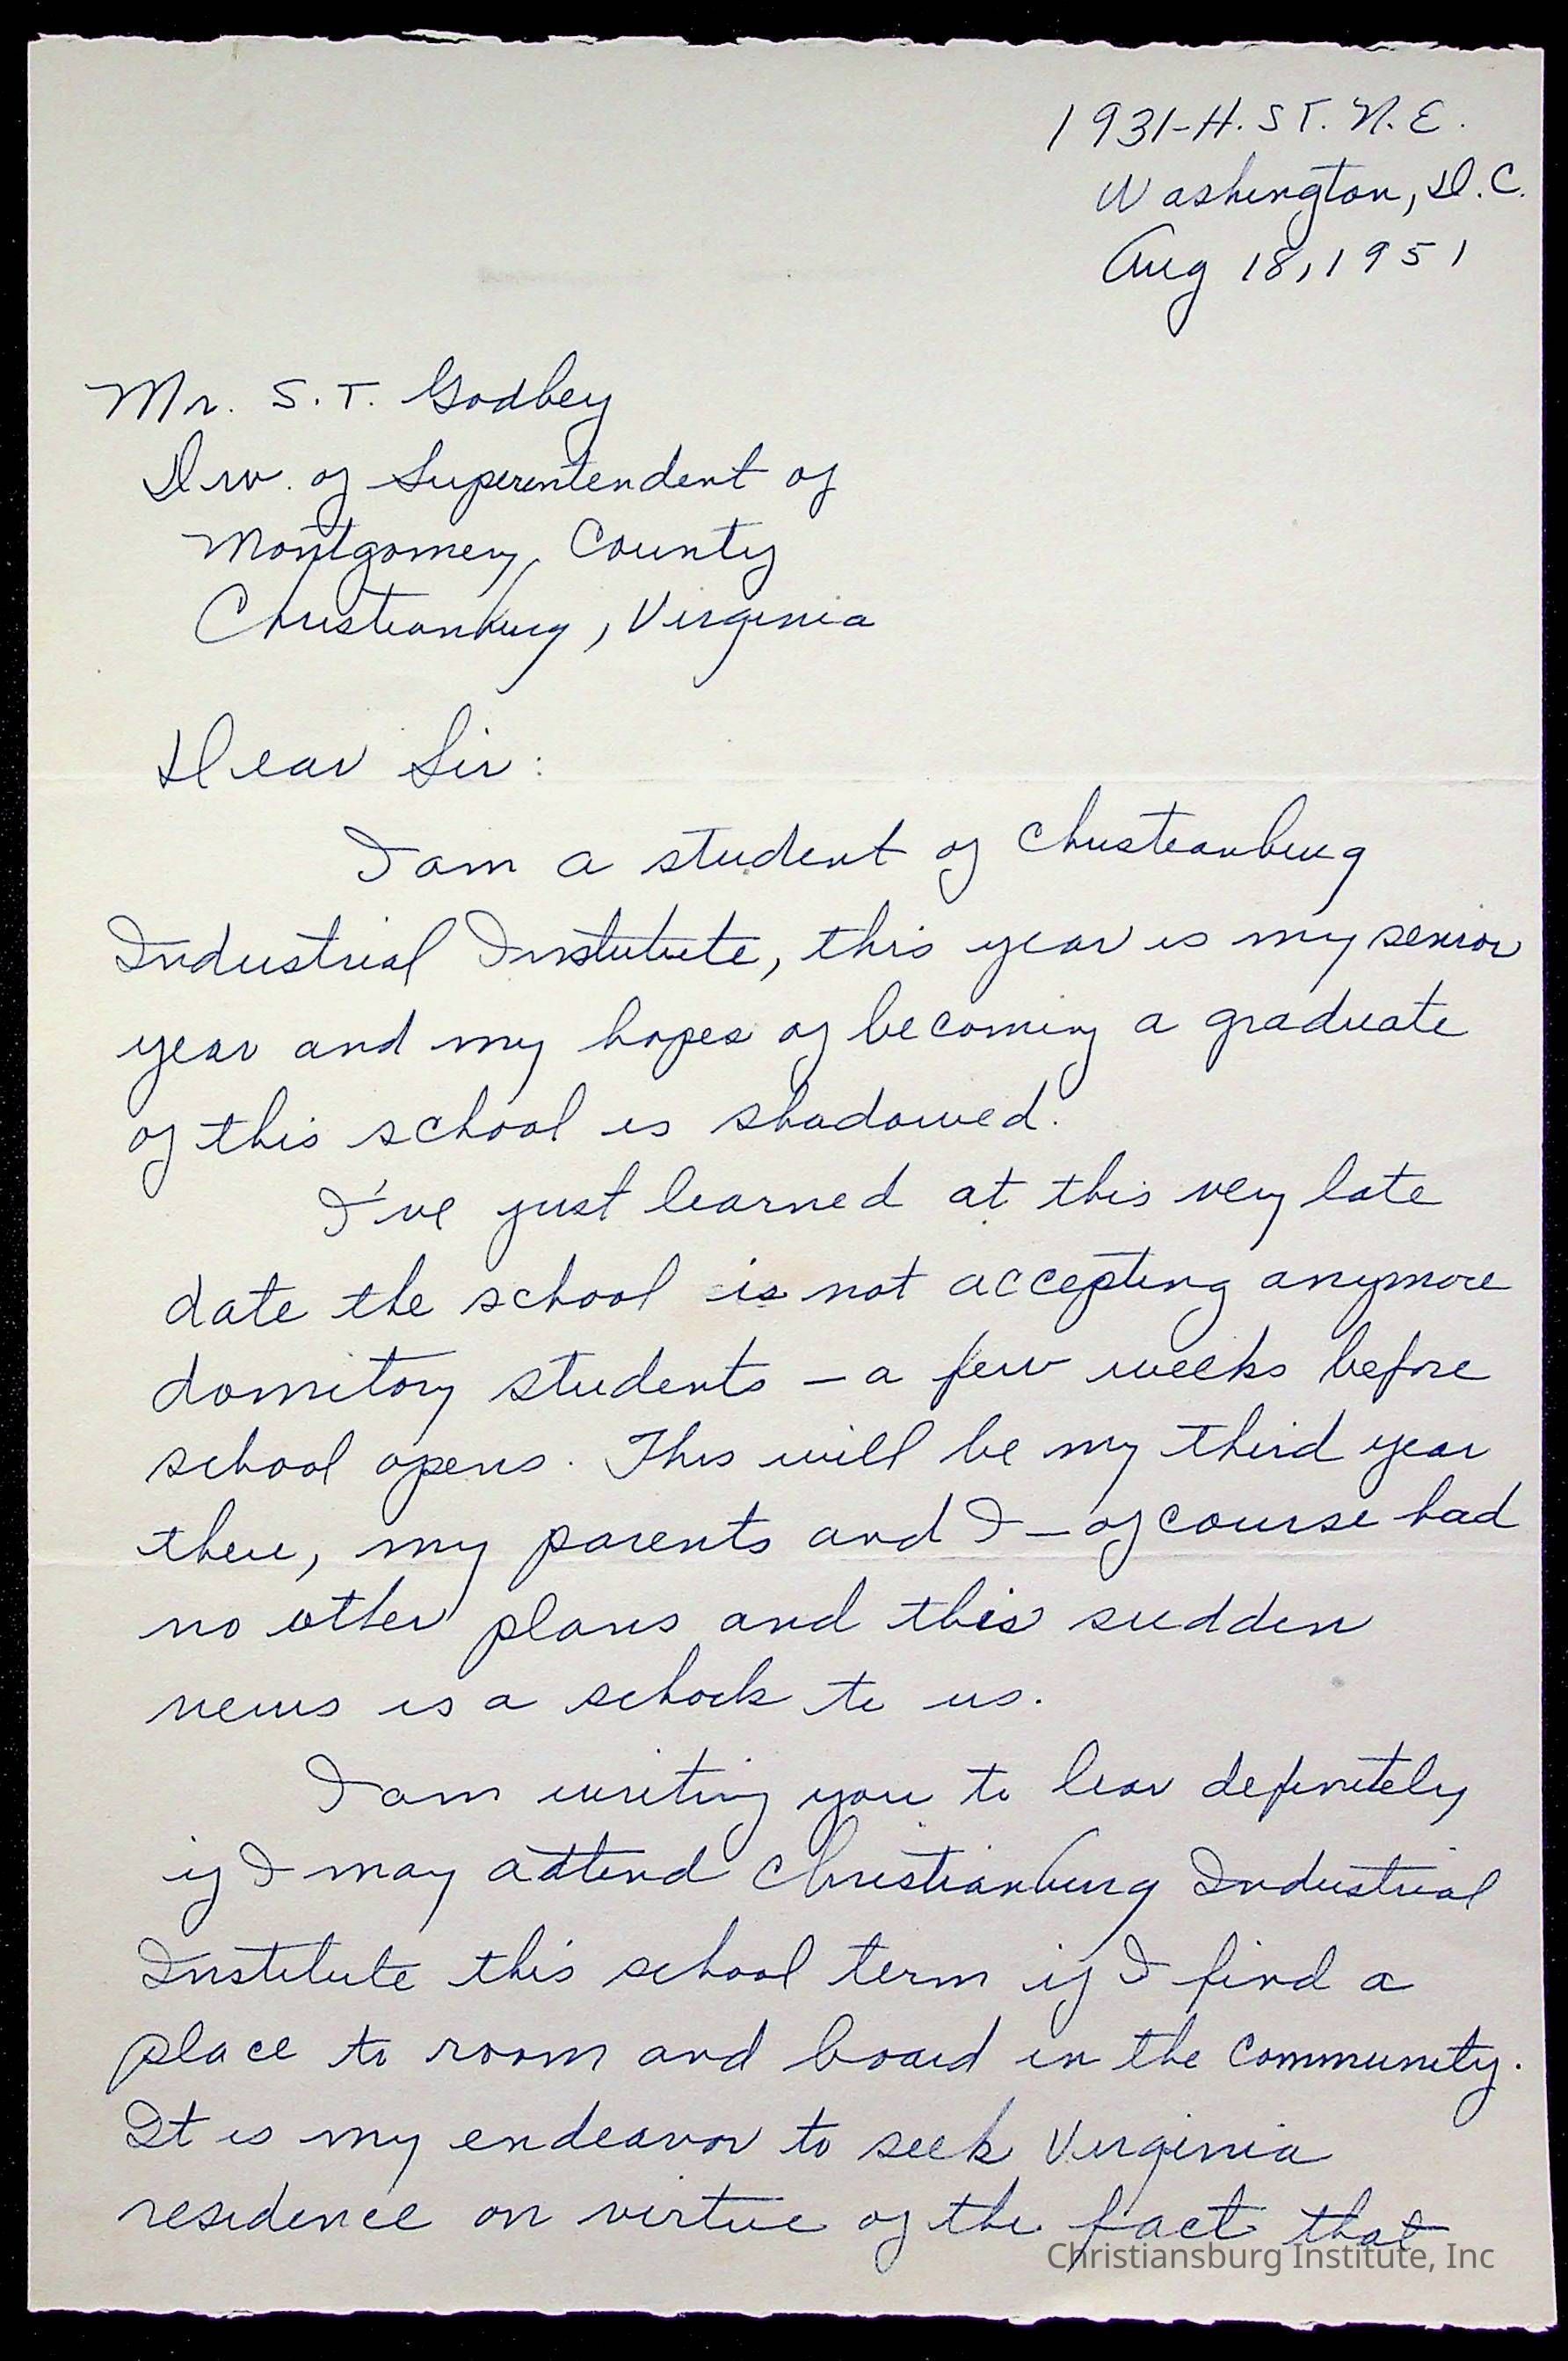 1931-H. ST. N.E.
Washington, D.C.
Aug 18, 1951
Mr. S. T. Godbey
Div. of Superentendent of
Montgomery, County
Christianburg, Virginia
Dear Sir:
I am a student of Christianburg
Industrial Institute, this year is my senior
year and my hopes of becoming a graduate
of this school is shadowed.
I've just learned at this very late
date the school is not accepting anymore
domitory students – a few weeks before
school opens. This will be my third year
there, my parents and I – of course had
no other plans and this sudden
news is a schock to us.
I am writing you to hear definitely
if I may attend Christianburg Industrial
Institute this school term if I find a
place to room and board in the community.
It is my endeavor to seek Virginia
residence on virtue of the fact that
Christiansburg Institute, Inc